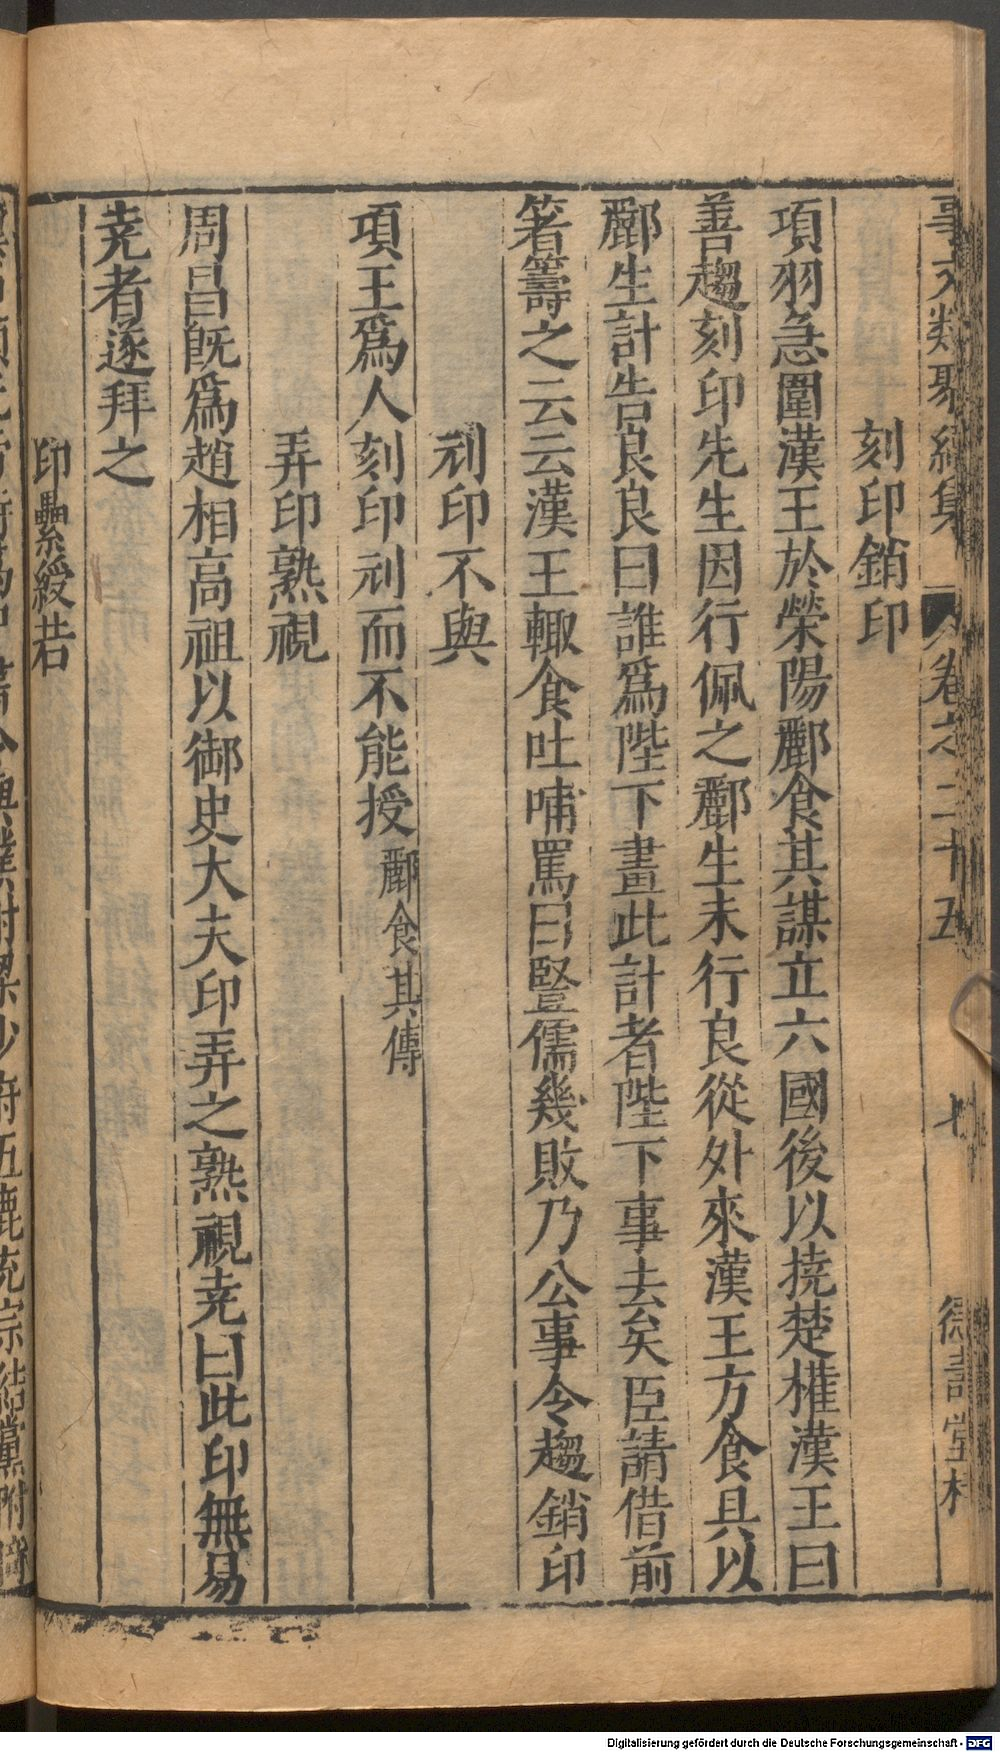 事文類聚續集 卷之二十五 七 德壽堂梓
刻印銷印
項羽急圍漢王於榮陽酈食其謀立六國後以撓楚權漢王曰
善趨刻印先生因行佩之酈生未行良從外來漢王方食具以
酈生計告良良曰誰爲陛下畫此計者陛下事去矣臣請借前
箸籌之云云漢王輙食吐哺罵曰豎儒幾敗乃公事令趨銷印
刓印不與
項王爲人刻印刓而不能授酈食其傳
弄印熟視
周昌旣爲趙相高祖以御史大夫印弄之熟視尭曰此印無易
尭者遂拜之
印纍綬若
Digitalisierung gefördert durch die Deutsche Forschungsgemeinschaft - DFG